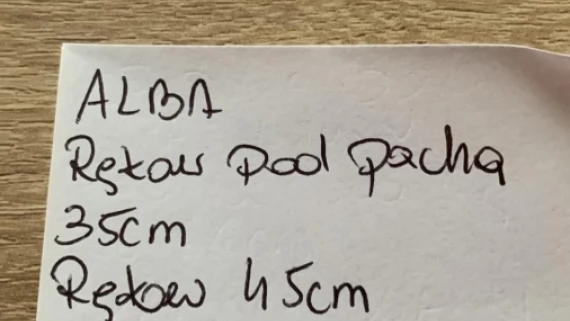 ALBA
Rękaw pod pachą
35cm
Rękaw 45cm